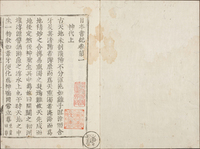 日本書紀卷第一
神代上
古天地未剖陰陽不分渾沌如鷄子溟涬而含
牙及其清陽者薄靡而爲天重濁者淹滯而爲
地精妙之合搏易重濁之凝竭難故天先成而
地後定然後神聖生其中焉故曰開闢之初洲
壤浮漂譬猶游魚之浮水上也于時天地之中
生一物狀如葦牙便化爲神號國常立尊